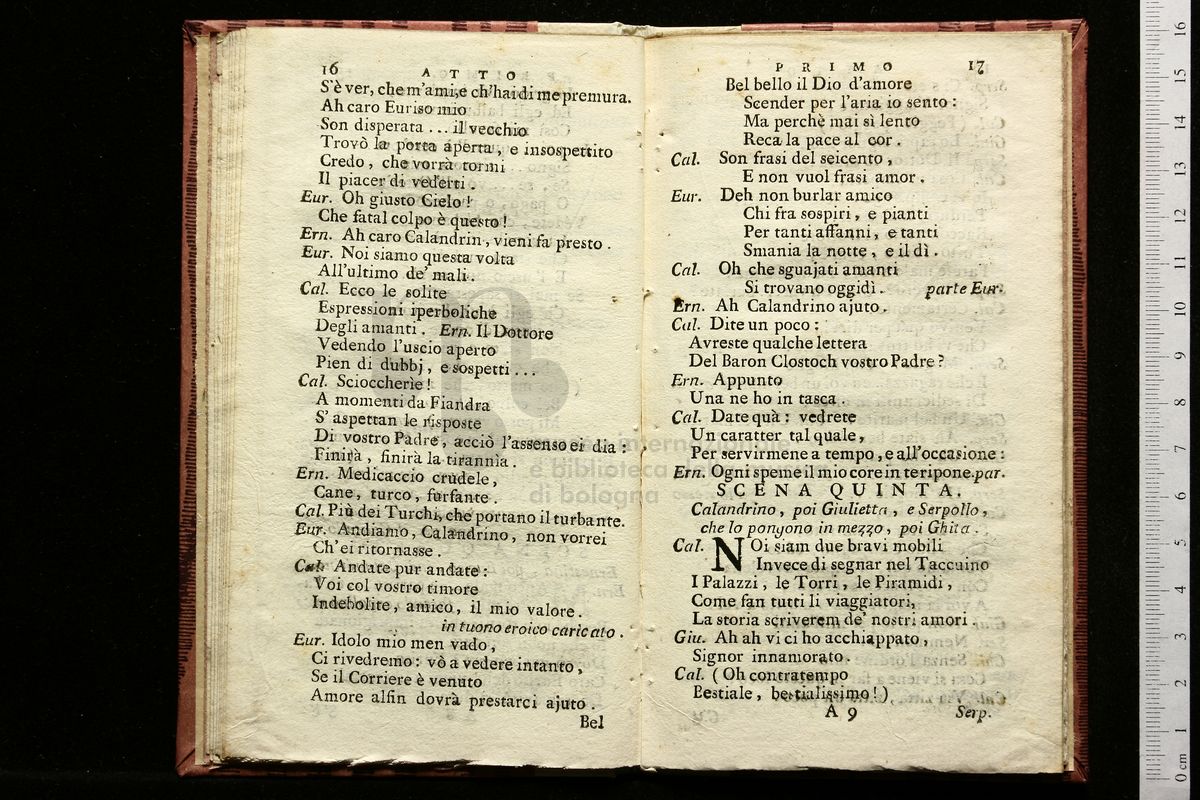 16 ATTO
S'è ver, che m'ami, e ch'hai di me premura.
Ah caro Euriso mio
Son disperata ... il vecchio
Trovò la porta aperta, e insospettito
Credo, che vorrà tormi
Il piacer di vederti.
Eur. Oh giusto Cielo!
Che fatal colpo è questo!
Ern. Ah caro Calandrin, vieni fa presto.
Eur. Noi siamo questa volta
All'ultimo de' mali.
Cal. Ecco le solite
Espressioni iperboliche
Degli amanti. Ern. Il Dottore
Vedendo l'uscio aperto
Pien di dubbj, e sospetti ...
Cal. Scioccherìe!
A momenti da Fiandra
S'aspettan le risposte
Di vostro Padre, acciò l'assenso ei dia:
Finirà, finirà la tirannìa.
Ern. Medicaccio crudele,
Cane, turco, furfante.
Cal. Più dei Turchi, che portano il turbante.
Eur. Andiamo, Calandrino, non vorrei
Ch'ei ritornasse.
Cal. Andate pur andate:
Voi col vostro timore
Indebolite, amico, il mio valore.
in tuono eroico caricato.
Eur. Idolo mio men vado,
Ci rivedremo: vò a vedere intanto,
Se il Corriere è venuto
Amore alfin dovrà prestarci ajuto.
Bel
PRIMO 17
Bel bello il Dio d'amore
Scender per l'aria io sento:
Ma perchè mai sì lento
Reca la pace al cor.
Cal. Son frasi del seicento,
E non vuol frasi amor.
Eur. Deh non burlar amico
Chi fra sospiri, e pianti
Per tanti affanni, e tanti
Smania la notte, e il dì.
Cal. Oh che sguajati amanti
Si trovano oggidì. parte Eur.
Ern. Ah Calandrino ajuto.
Cal. Dite un poco:
Avreste qualche lettera
Del Baron Clostoch vostro Padre?
Ern. Appunto
Una ne ho in tasca.
Cal. Date quà: vedrete
Un caratter tal quale,
Per servirmene a tempo, e all'occasione:
Ern. Ogni speme il mio core in te ripone. par.
SCENA QUINTA.
Calandrino, poi Giulietta, e Serpollo,
che lo pongono in mezzo, poi Ghita.
Cal. NOi siam due bravi mobili
Invece di segnar nel Taccuino
I Palazzi, le Torri, le Piramidi,
Come fan tutti li viaggiatori,
La storia scriverem de' nostri amori.
Giu. Ah ah vi ci ho acchiappato,
Signor innamorato.
Cal. (Oh contratempo
Bestiale, bestialissimo!)
A 9 Serp.